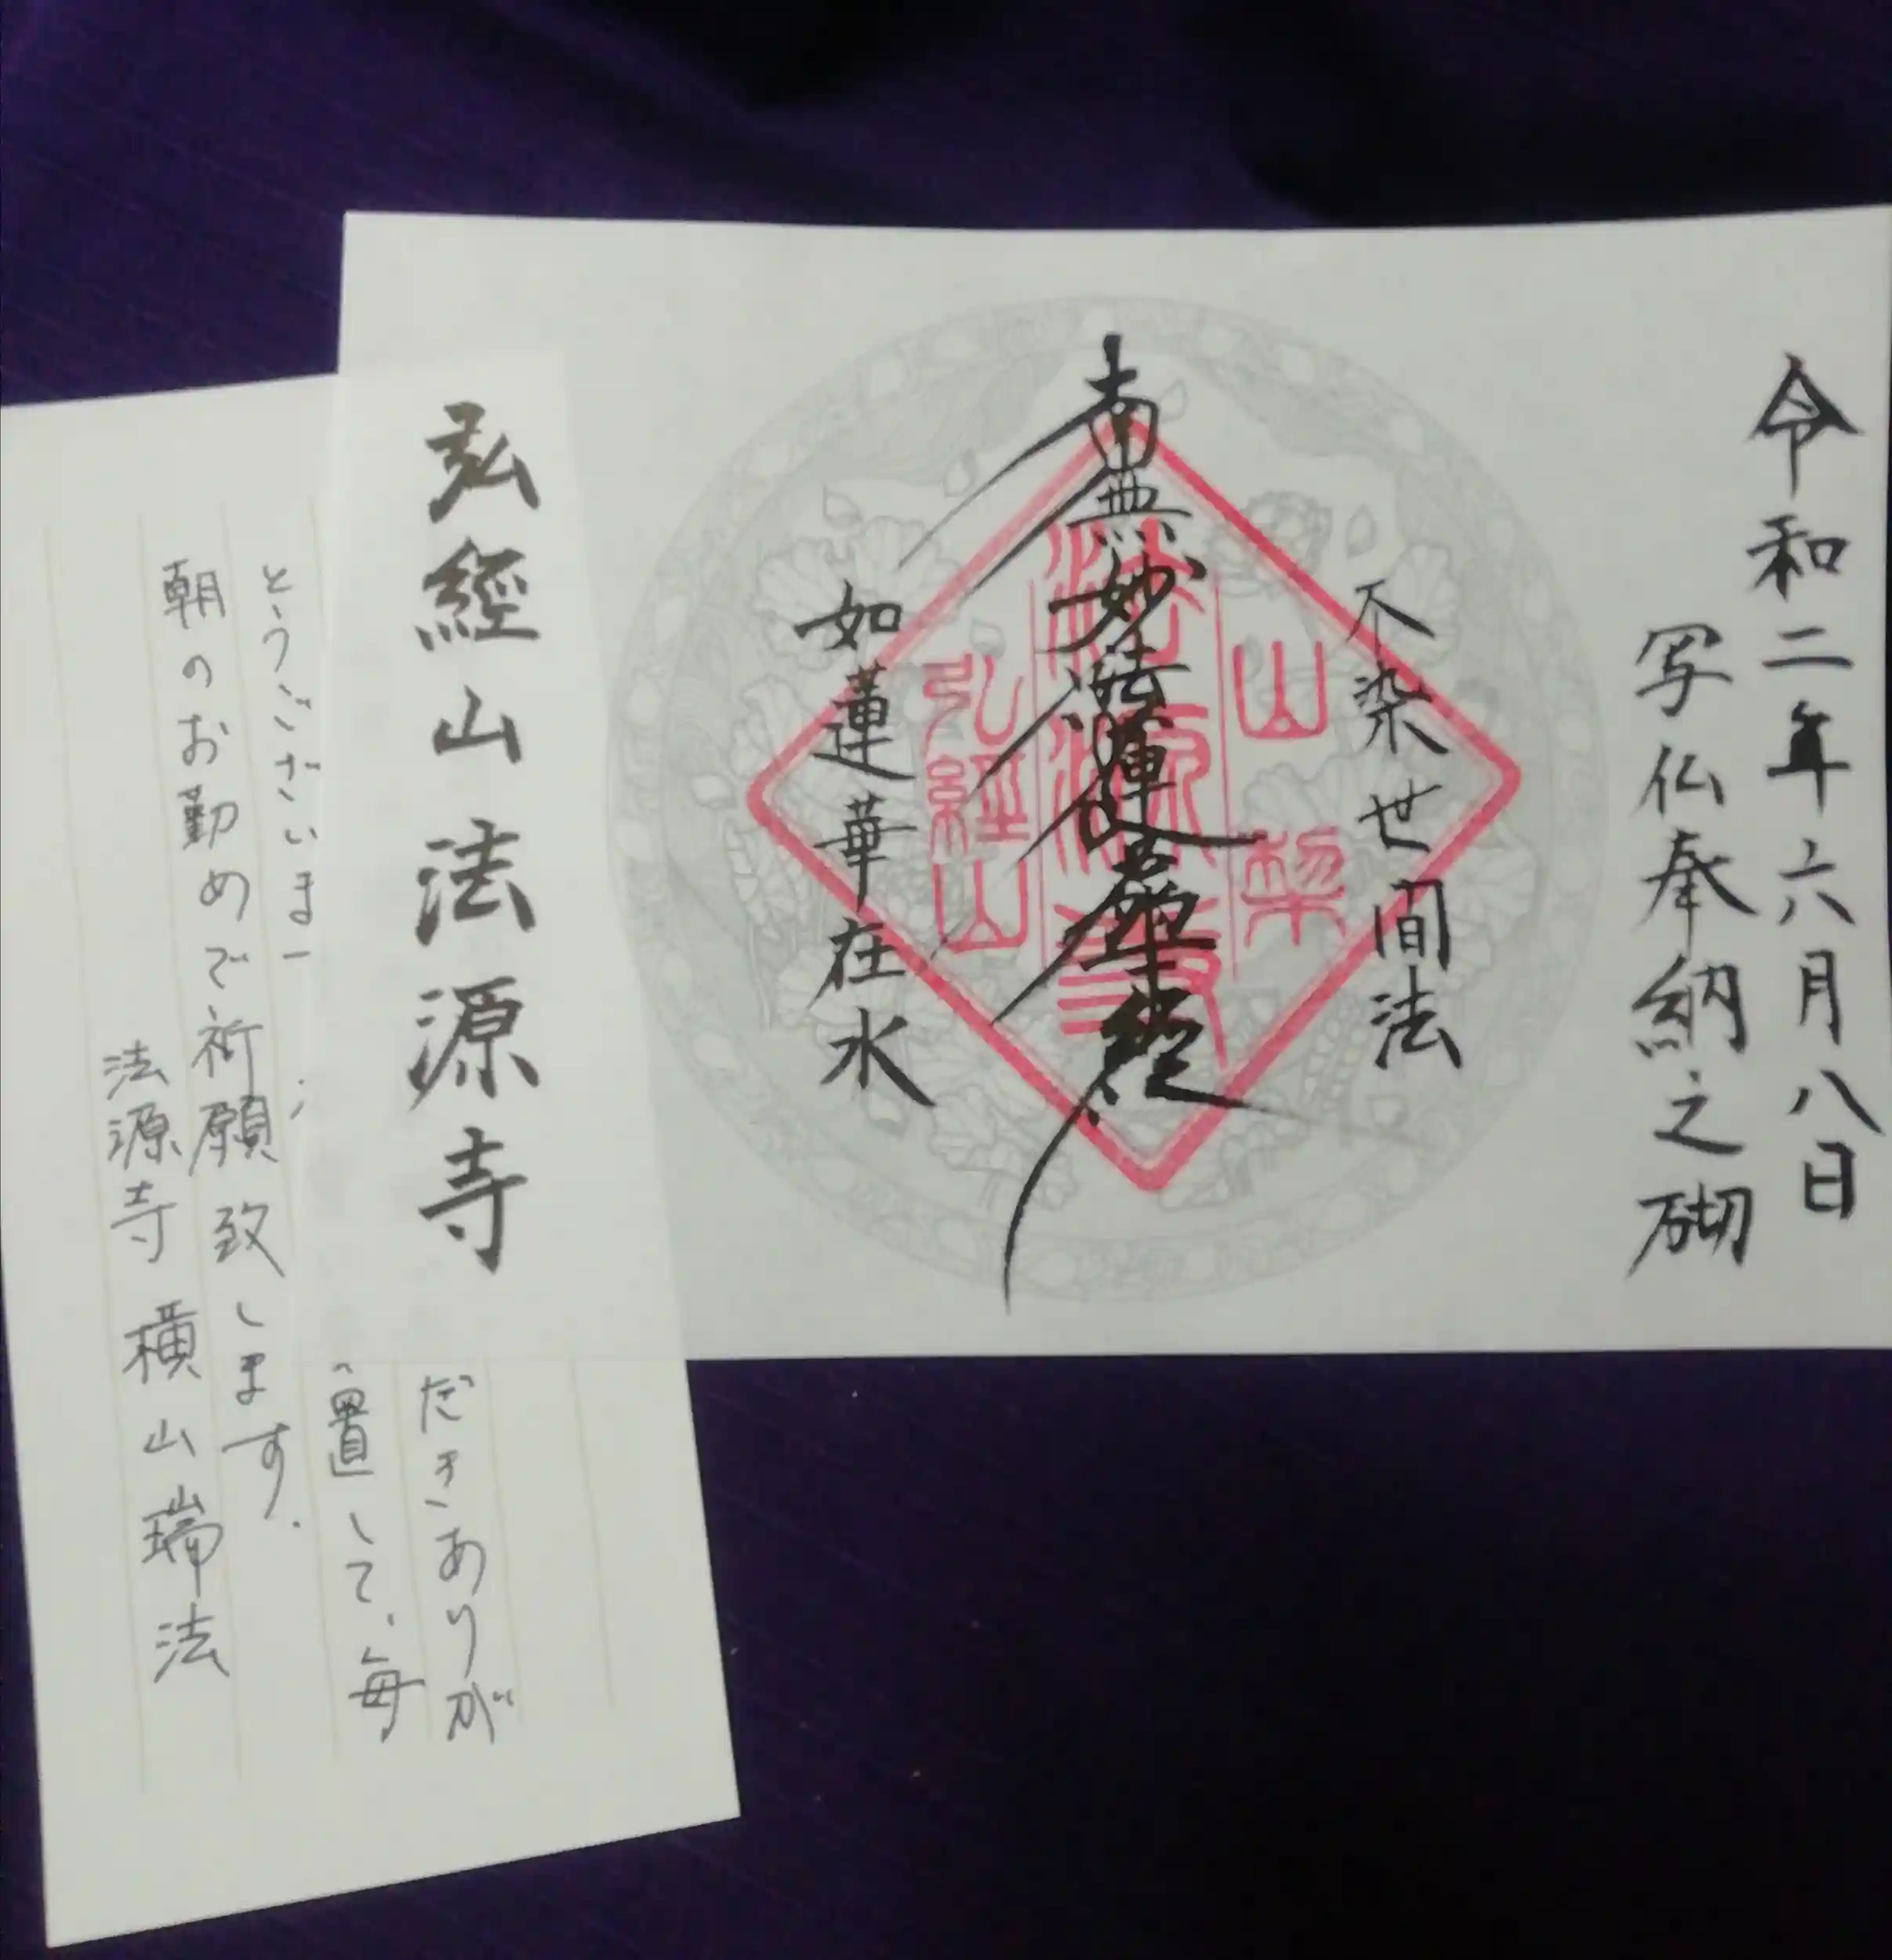 令和二年六月八日
写仏奉納之砌
不染世間法
南無妙法蓮華經
如蓮華在水
山梨
法源寺
弘経山
弘經山法源寺
だきありが
置して、毎
とうございま
朝のお勤めで祈願致します.
法源寺 横山瑞法